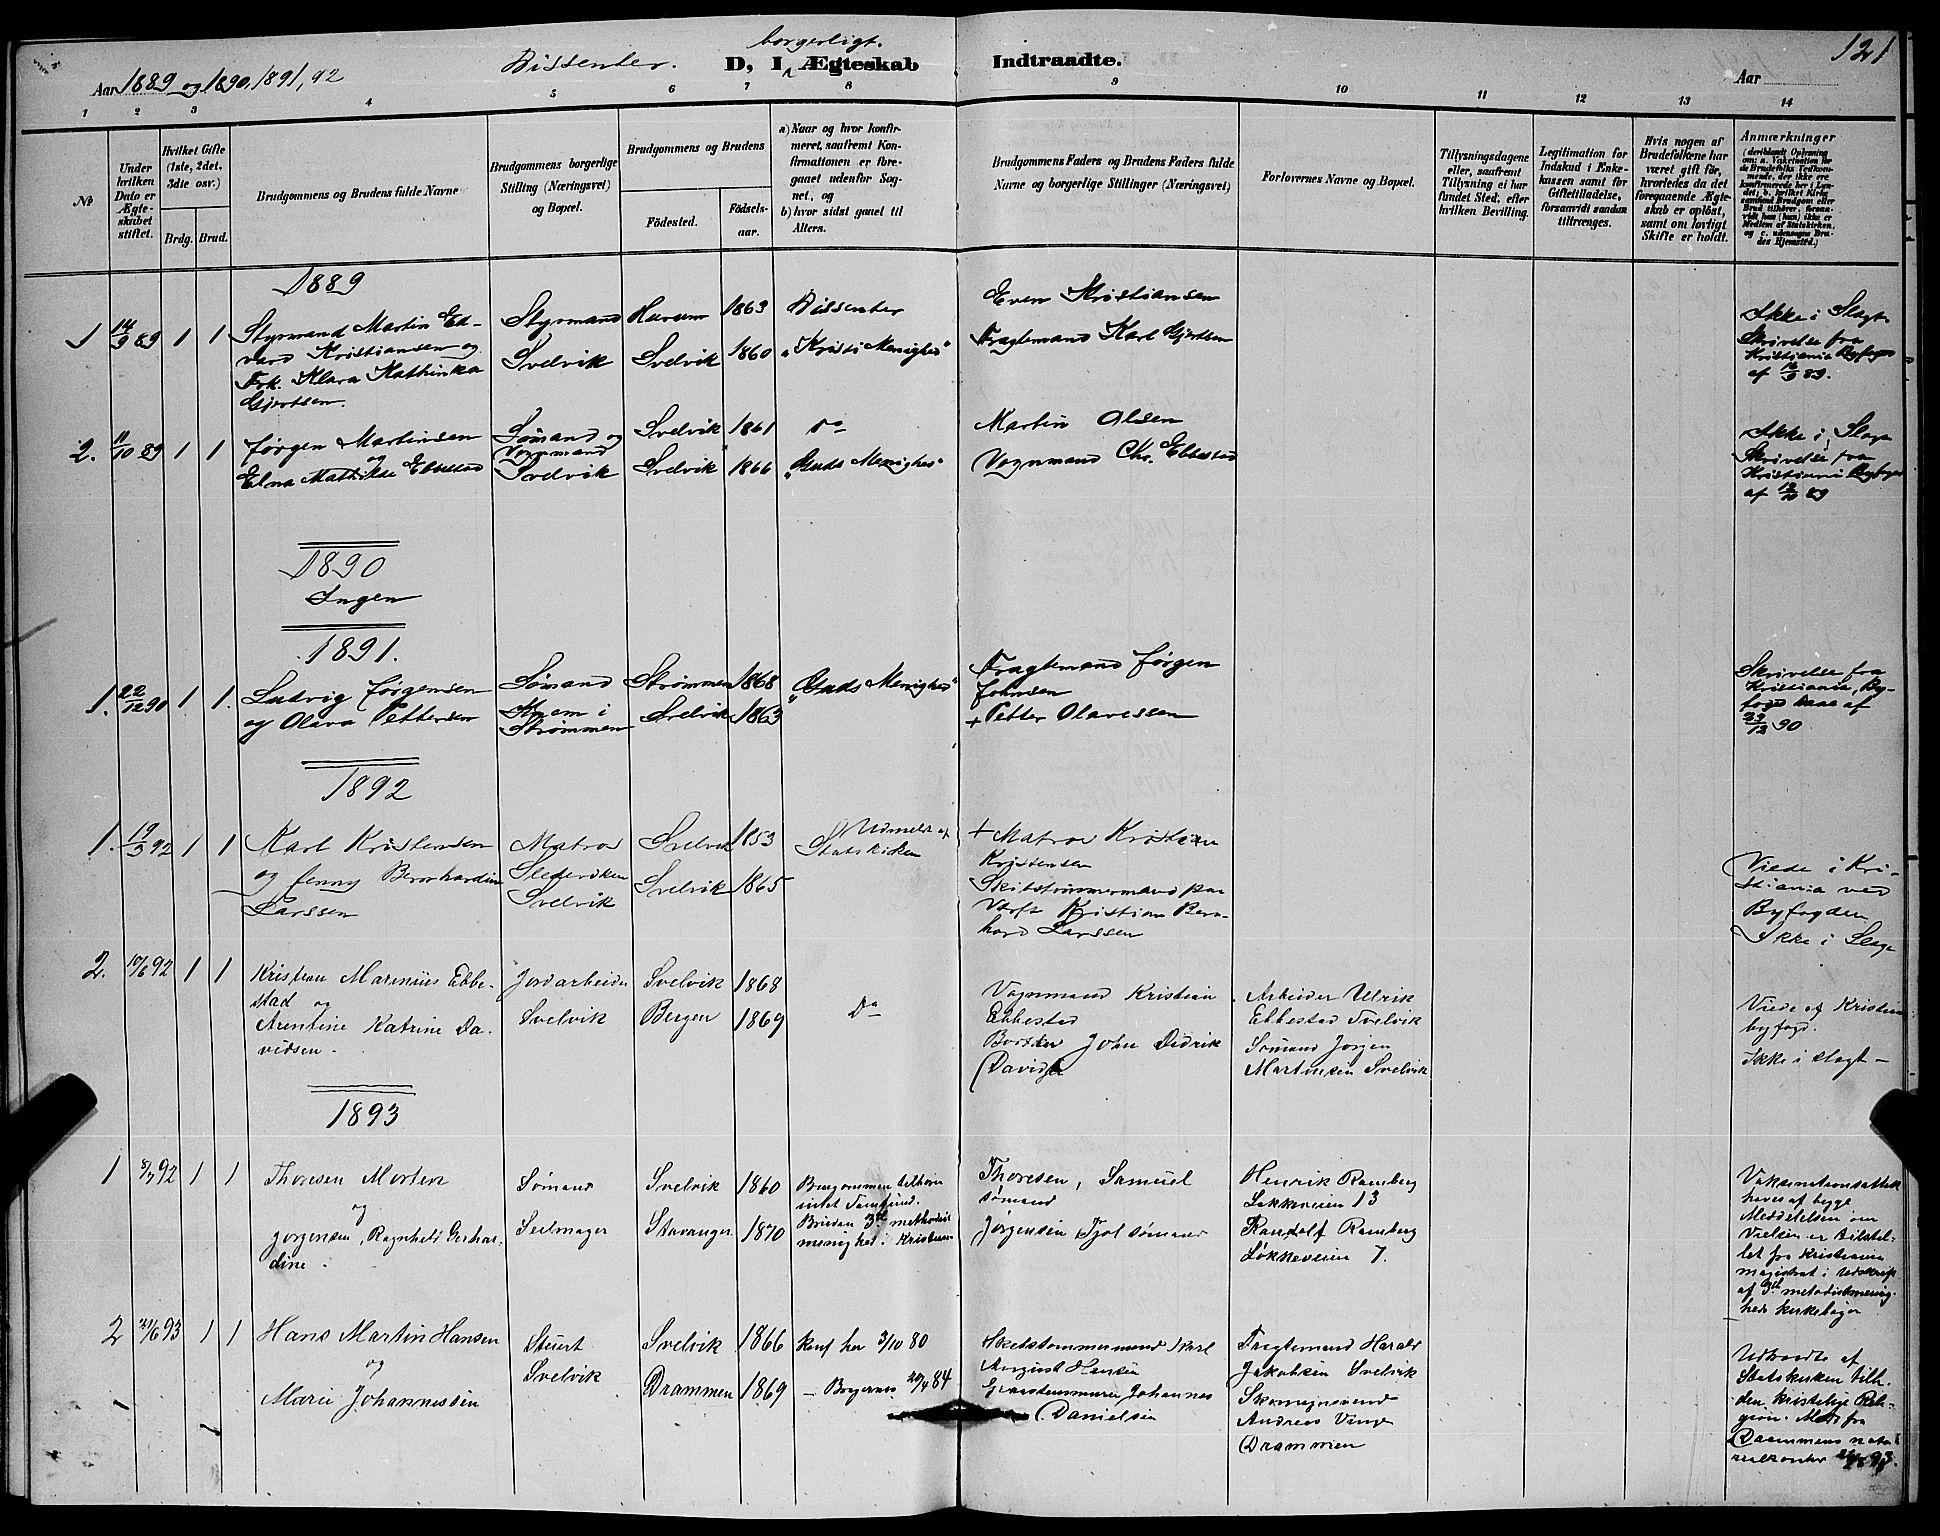 121
borgerligt.
Dissenter. D, I Ægteskab Indtraadte.
Aar 1889 og 1890, 1891, 92
Aar
1 2 3 4 5 6 7 8 9 10 11 12 13 14
No
Under hvilken Dato er Ægteskabet stiftet.
Hvilket Gifte (1ste, 2det, 3die osv.)
Brdg. Brud.
Brudgommens og Brudens fulde Navne
Brudgommens borgerlige Stilling (Næringsvei) og Bopæl.
Brudgommens og Brudens
Fødested. Fødselsaar.
a) Naar og hvor konfirmeret, saafremt Konfirmationen er foregaaet udenfor Sognet, og
b) hvor sidst gaaet til Alters.
Brudgommens Faders og Brudens Faders fulde Navne og borgerlige Stillinger (Næringsvei)
Forlovernes Navne og Bopæl.
Tillysningsdagene eller, saafremt Tillysning ei har fundet Sted, efter hvilken Bevilling.
Legitimation for Indskud i Enkekassen samt for Giftetilladelse, forsaavidt saadan tiltrænges.
Hvis nogen af Brudefolkene har været gift før, hvorledes da det foregaaende Ægteskab er opløst, samt om lovligt Skifte er holdt.
Anmærkninger
1889
1 14/9 89 1 1
Styrmand Martin Ed-
vard Kristiansen og
Frk. Klara Kathinka
Gjertsen.
Styrmand
Svelvik
Hurum 1863
Svelvik 1860
Dissenter
"Kristi Menighed"
Even Kristiansen
Fragtemand Karl Gjertsen
Ikke i Slagt
Skrivelse fra
Kristiania Byfoged
af 14/9 89.
2. 11/10 89 1 1
Jørgen Martinsen
og
Elna Mathilde Ebbestad
Sømand og
Vognmand
Svelvik
Svelvik 1861
Svelvik 1866
Do
"Guds Menighed"
Martin Olsen
Vognmand Chr. Ebbestad
Ikke i Slagt
Skrivelse fra
Kristiania Byfoged
af 12/10 89
1890
Ingen
1891.
1. 22/12 90 1 1.
Ludvig Jørgensen
og Olava Pettersen
Sømand
Knem i
Strømmen
Strømmen 1868
Svelvik 1863
"Guds Menighed"
Fragtemand Jørgen
Johnsen
+ Petter Olavessen
Skrivelse fra
Kristiania By-
foged af
90
1892
1. 19/3 92 1 1
Karl Kristensen
og Jenny Bernhardin
Larssen
Matros
Svelvik
Svelvik 1853
Svelvik 1865
Udmeldt af
Statskirken
+ Matros Kristian
Kristensen
Skibstømmermand paa
Værft Kristian Bern-
hard Larssen
Viede i Kri-
stiania ved
Byfogden
Ikke i Slagt
2. 10/6 92 1 1
Kristian Marinius Ebbe-
stad og
Arentine Katrine Da-
vidsen.
Jordarbeider
Svelvik
Svelvik 1868
Bergen 1869
Do
Vognmand Kristian
Ebbestad
John Didrik
Davidsen
Arbeider Ulrik
Ebbestad Svelvik
Sømand Jørgen
Martinsen Svelvik
Viede af Kristiania
byfogd.
Ikke i slagt -
1893
1 8/7 92 1 1
Thoresen Morten
og
Jørgensen, Ragnhild Gerhar-
dine.
Sømand
Seilmager
Svelvik 1860
Stavanger 1870
Brugommen tilhører
intet Samfund.
Bruden 3die methodist
menighed i Kristiania
Thoresen, Samuel
sømand
Jørgensen Tjol sømand
Henrik Ramberg
Løkkeveien 13
Randolf Ramberg
Løkkeveien 7.
Vaksinationsattest
haves af begge
Meddelelsen om
Vielsen er tilstil-
let fra Kristiania
magistrat i Udskrift
af 3die metodistmenig-
heds kirkebøger
2 21/6 93 1 1
Hans Martin Hansen
og
Marie Johannessen
Stuert
Svelvik
Svelvik 1866
Drammen 1869
konf her 3/10 80
- Bragernes 20/4 84
Skibstømmermand Karl
August Hansen
Johannes
Danielsen
Fragtemand Harald
Jakobsen Svelvik
Andreas Vinge
Drammen
Udtraadte af
Statskirken tilh.
den kristelige Reli-
gion. Meds fra
Drammens nota-
rialkontor 93.